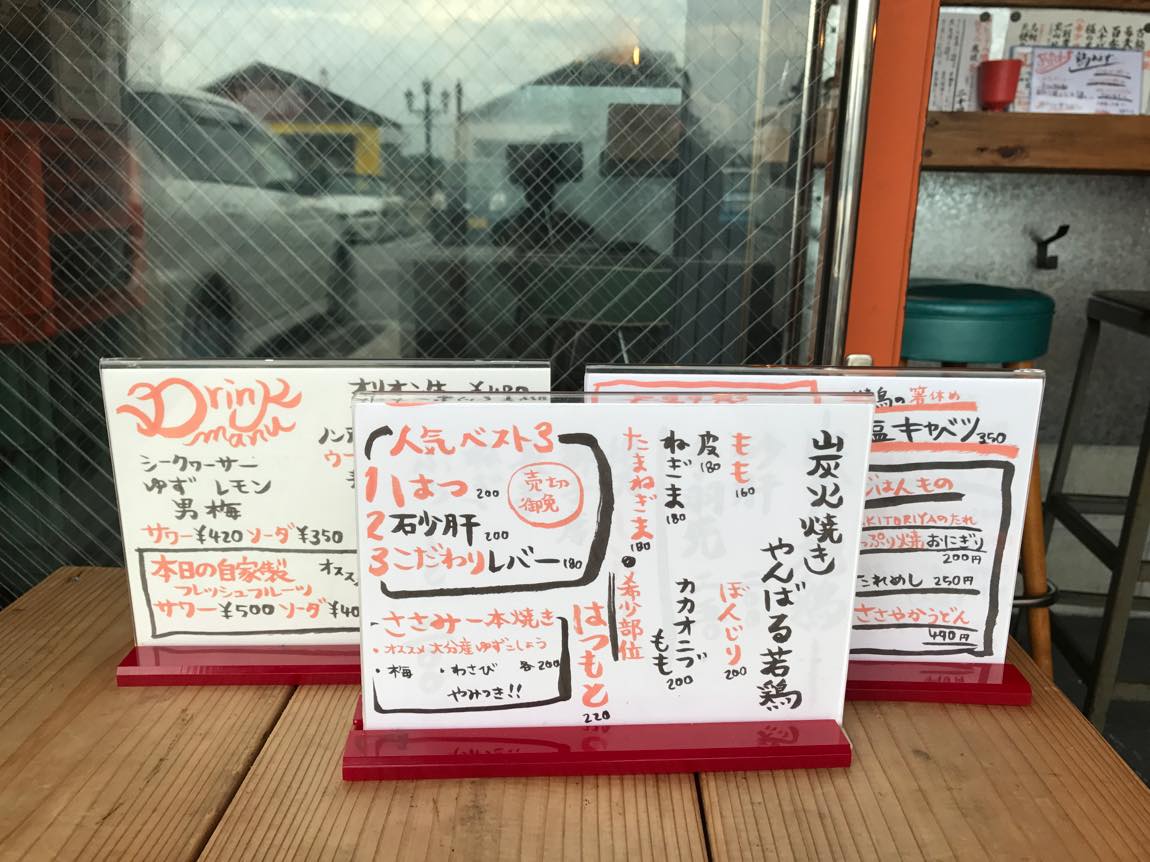 Drink
manu
オリオン生 ¥480
シークヮーサー
ゆず レモン
男梅
サワー ¥420 ソーダ ¥350
本日の自家製
フレッシュフルーツ
サワー ¥500 ソーダ ¥40
人気ベスト3
1 はつ 200
売切御免
2 砂肝 200
3 こだわりレバー 180
ささみ一本焼き
・オススメ 大分産ゆずこしょう
・梅 ・わさび 各200
やみつき!!
山炭火焼き
やんばる若鶏
もも 160
皮 180
ねぎま 180
たまねぎま 180
ぼんじり 200
カカオニブもも 200
●希少部位
はつもと 220
の箸休め
塩キャベツ 350
ごはんもの
KITORIYAのたれ
っぷり焼おにぎり
200円
たれめし 250円
ささやかうどん
490円